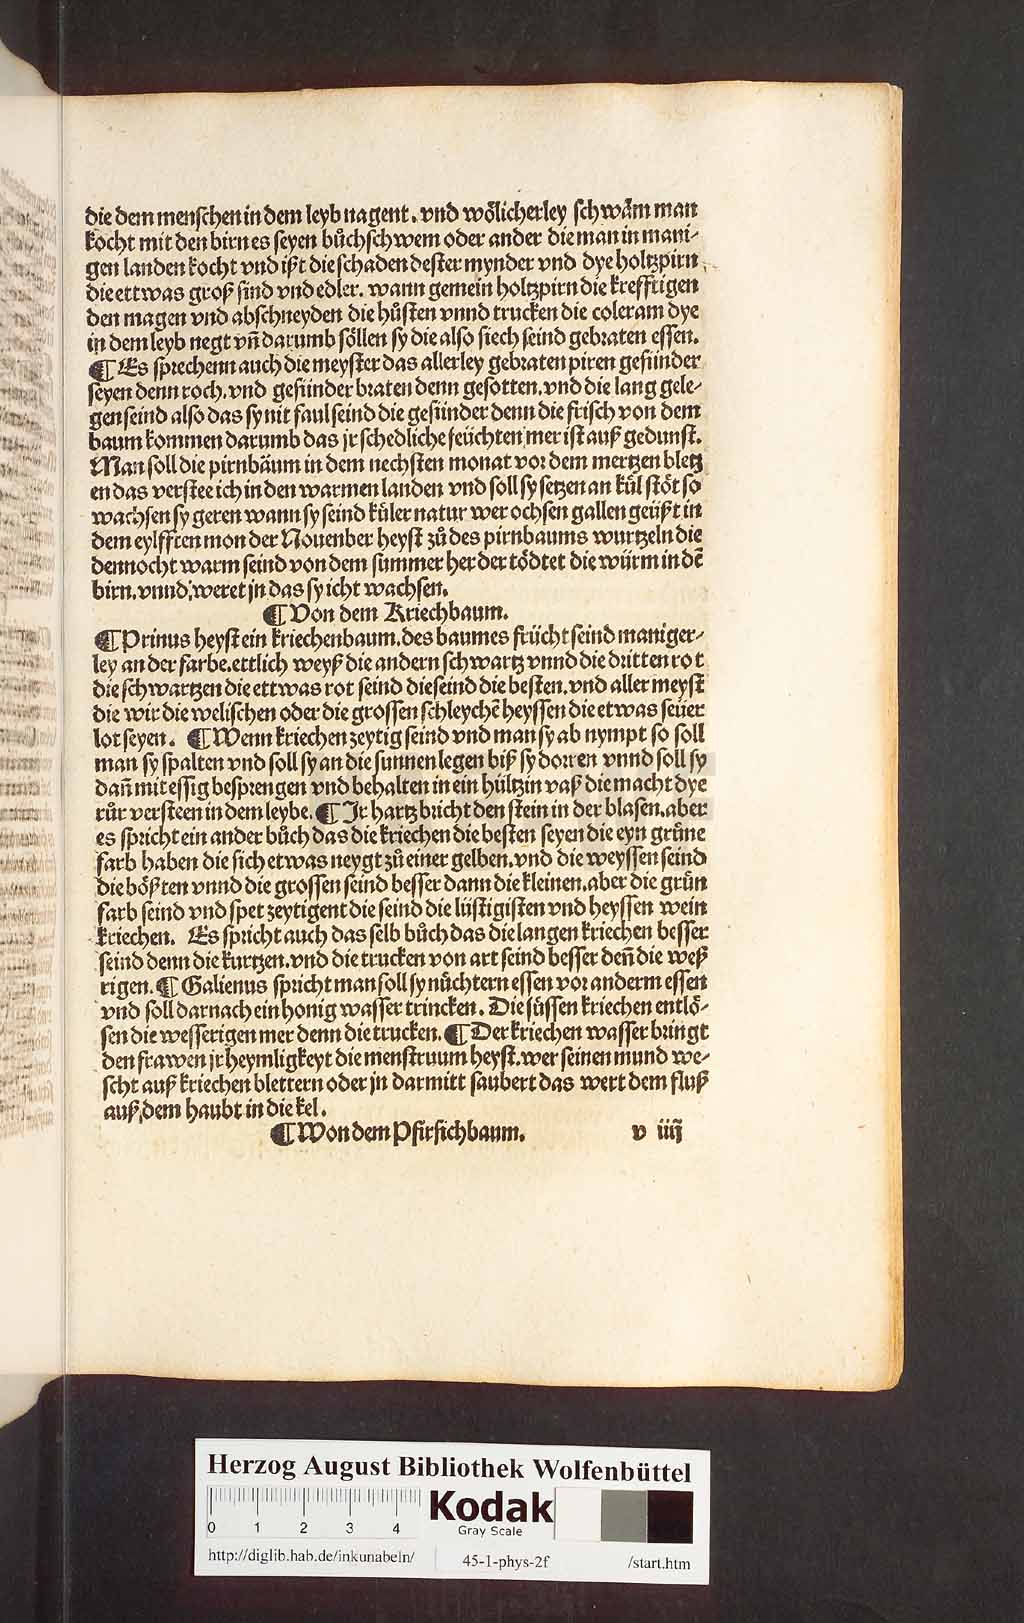 die dem menschen in dem leyb nagent. vnd wőlicherley schwäm man
kocht mit den birn es seyen bůchschwem oder ander die man in mani-
gen landen kocht vnd ißt die schaden dester mynder vnd dye holtzpirn
die ettwas groß sind vnd edler. wann gemein holtzpirn die krefftigen
den magen vnd abschneyden die hůsten vnnd trucken die coleram dye
in dem leyb negt vn̄ darumb söllen sy die also siech seind gebraten essen.
¶ Es sprechenn auch die meyster das allerley gebraten piren gesünder
seyen denn roch. vnd gesünder braten denn gesotten. vnd die lang gele-
gen seind also das sy nit faul seind die gesünder denn die frisch von dem
baum kommen darumb das jr schedliche feüchten mer ist auß gedunst.
Man soll die pirnbäum in dem nechsten monat vor dem mertzen bletz
en das verstee ich in den warmen landen vnd soll sy setzen an kůl stöt so
wachsen sy geren wann sy seind kůler natur wer ochsen gallen geüßt in
dem eylfften mon der Nouenber heyst zů des pirnbaums wurtzeln die
dennocht warm seind von dem summer her der tödtet die würm in dē
birn. vnnd weret jn das sy icht wachsen.
¶ Von dem Kriechbaum.
¶ Prinus heyst ein kriechenbaum. des baumes frücht seind maniger-
ley an der farbe. ettlich weyß die andern schwartz vnnd die dritten rot
die schwartzen die ettwas rot seind die seind die besten. vnd aller meyst
die wir die welischen oder die grossen schleychē heyssen die etwas seüer
lot seyen. ¶ Wenn kriechen zeytig seind vnd man sy ab nympt so soll
man sy spalten vnd soll sy an die sunnen legen biß sy dorren vnnd soll sy
dan̄ mit essig besprengen vnd behalten in ein hültzin vaß die macht dye
růr versteen in dem leybe. ¶ Jr hartz bricht den stein in der blasen. aber
es spricht ein ander bůch das die kriechen die besten seyen die eyn grůne
farb haben die sich etwas neygt zů einer gelben. vnd die weyssen seind
die bößten vnnd die grossen seind besser dann die kleinen. aber die grün
farb seind vnd spet zeytigent die seind die lüstigisten vnd heyssen wein
kriechen. Es spricht auch das selb bůch das die langen kriechen besser
seind denn die kurtzen. vnd die trucken von art seind besser den̄ die weß
rigen. ¶ Galienus spricht man soll sy nůchtern essen vor anderm essen
vnd soll darnach ein honig wasser trincken. Die süssen kriechen entlö-
sen die wesserigen mer denn die trucken. ¶ Der kriechen wasser bringt
den frawen jr heymligkeyt die menstruum heyst. wer seinen mund we-
scht auß kriechen blettern oder jn darmitt saubert das wert dem fluß
auß dem haubt in die kel.
¶ Won dem Pfirsichbaum. v iiij
Herzog August Bibliothek Wolfenbüttel
0 1 2 3 4
Kodak
Gray Scale
http://diglib.hab.de/inkunabeln/ 45-1-phys-2f /start.htm